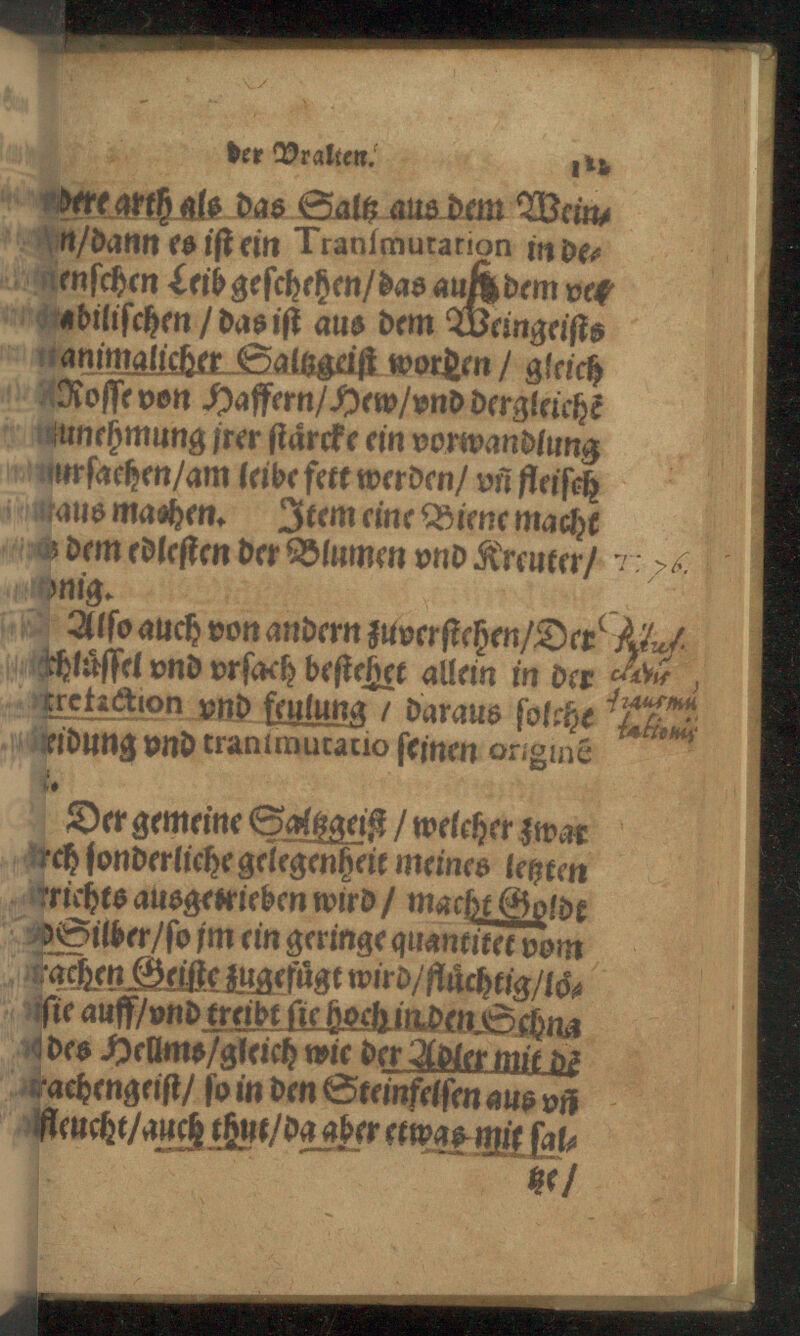 der Vralten.
dere arth als das Saltz aus dem Wein⸗
n/dann es ist ein Transmutation in de⸗
enschen Leib geschehen/das auß dem ve
abilischen / das ist aus dem Weingeists
animalicher Saltzgeist worden / gleich
Rosse von Haffern/Hew/vnd dergleichẽ
unehmung jrer stårcke ein vorwandlung
urſachen/am leibe fett werden/ vñ fleisch
aus machen. Item eine Biene macht
dem edlesten der Blumen vnd Kreuter/
nig.
Also auch von andern zuverstehen/Der
hlůssel vnd vrsach bestehet allein in der
trefaction vnd feulung / daraus solche
eidung vnd transmutatio seinen originẽ
Der gemeine Saltzgeist / welcher zwar
ch sonderliche gelegenheit meines letzten
richts ausgetrieben wird / macht Goldt
Silber/so jm ein geringe quantitet vom
achen Geiste zugefůgt wird/flůchtig/lő⸗
sie auff/vnd treibt sie hoch in den Schna
des Hellms/gleich wie der Adler mit dẽ
achengeist/ so in den Steinfelsen aus vñ
fleucht/auch thut/da aber etwas mit sal⸗
tze/